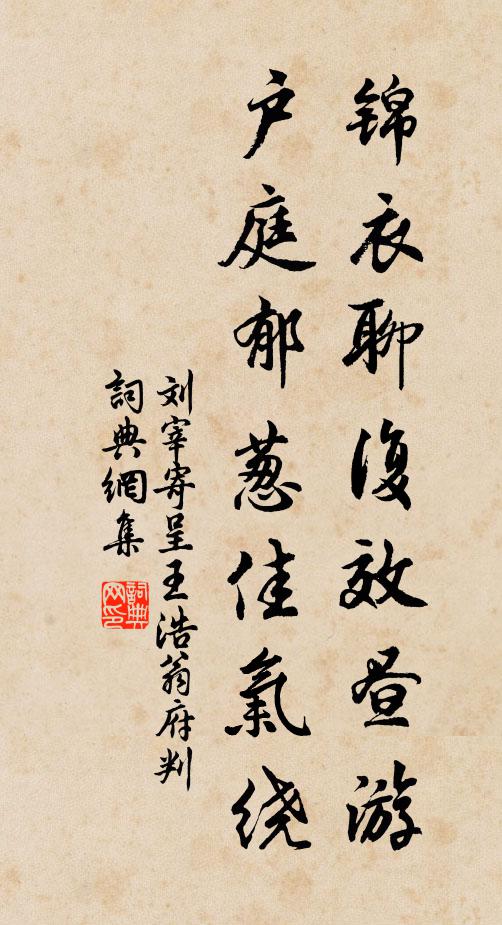 锦衣聊复效昼游
户庭郁葱佳氣绕
刘宰寄呈王浩翁府判
詞典網集
詞典网印